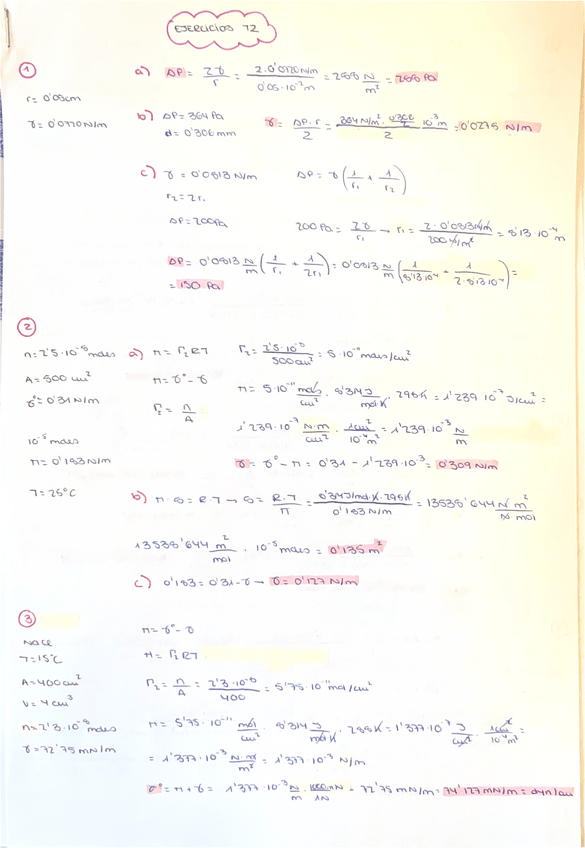 EJERCICIOS T2
①
r = 0'05cm
γ = 0'0720 N/m
a) ΔP = 2γ/r = 2·0'0720 N/m / 0'05·10⁻² m = 288 N/m² = 288 Pa
b) ΔP = 364 Pa
d = 0'306 mm
γ = ΔP·r/2 = = 0'0275 N/m
c) γ = 0'0813 N/m ΔP = γ (1/r₁ + 1/r₂)
r₂ = 2r₁
ΔP = 200Pa 200 Pa = 2γ/r₁ → r₁ = 2·0'0813 N/m / 200 N/m² = 8'13·10⁻⁴ m
ΔP = 0'0813 N/m (1/r₁ + 1/2r₁) = 0'0813 N/m (1/8'13·10⁻⁴ + 1/2·8'13·10⁻⁴) =
= 150 Pa
②
n = 2'5·10⁻⁸ moles
A = 500 cm²
γ° = 0'31 N/m
10⁻⁵ moles
π = 0'183 N/m
T = 25°C
a) π = Γ₂RT Γ₂ = 2'5·10⁻⁸ / 500 cm² = 5·10⁻¹¹ moles/cm²
π = γ° - γ
Γ₂ = n/A
π = 5·10⁻¹¹ moles/cm² · 8'314 J/mol·K · 298K = 1'239·10⁻⁷ J/cm² =
1'239·10⁻⁷ N·m/cm² · 1cm²/10⁻⁴m² = 1'239·10⁻³ N/m
γ = γ° - π = 0'31 - 1'239·10⁻³ = 0'309 N/m
b) π·σ = R·T → σ = R·T/π = 8'314 J/mol·K·298K / 0'183 N/m = 13538'644 N m²/N mol
13538'644 m²/mol · 10⁻⁵ moles = 0'135 m²
c) 0'183 = 0'31 - γ → γ = 0'127 N/m
③
NaCl
T = 15°C
A = 400 cm²
V = 4 cm³
n = 2'3·10⁻⁸ moles
γ = 72'75 mN/m
π = γ° - γ
π = Γ₂RT
Γ₂ = n/A = 2'3·10⁻⁸ / 400 = 5'75·10⁻¹¹ mol/cm²
π = 5'75·10⁻¹¹ mol/cm² · 8'314 J/mol·K · 288K = 1'377·10⁻⁷ J/cm² · 1cm²/10⁻⁴m² =
= 1'377·10⁻³ N·m/m² = 1'377·10⁻³ N/m
γ° = π + γ = 1'377·10⁻³ N/m · 1000mN/1N + 72'75 mN/m = 74'127 mN/m = dyn/cm